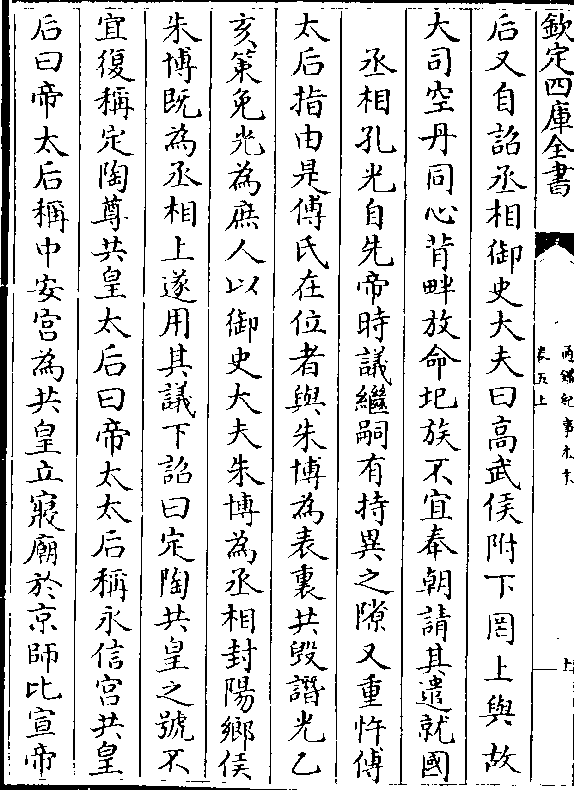 欽定四庫全書
西漢紀事本末
卷五上
后又自詔丞相御史大夫曰高武侯附下罔上與故
大司空丹同心背畔放命圯族不宜奉朝請其遣就國
丞相孔光自先帝時議繼嗣有持異之隙又重忤傅
太后指由是傅氏在位者與朱博為表裏共毀譖光乙
亥策免光為庶人以御史大夫朱博為丞相封陽鄉侯
朱博既為丞相上遂用其議下詔曰定陶共皇之號不
宜復稱定陶尊共皇太后曰帝太太后稱永信宮共皇
后曰帝太后稱中安宮為共皇立寢廟於京師比宣帝